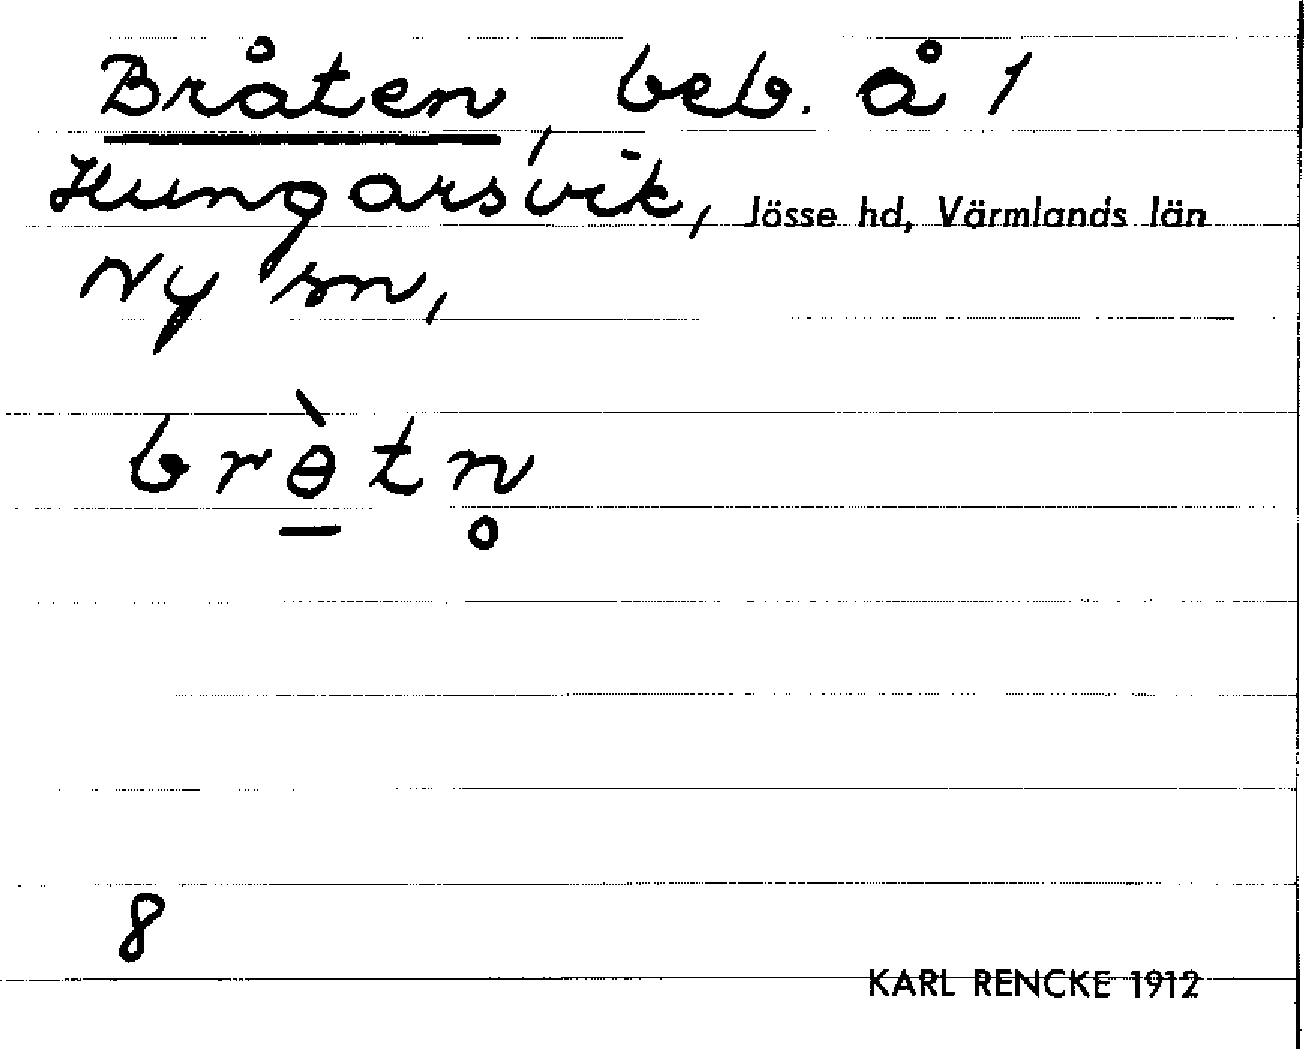 Bråten, beb. å 1
Hungarsvik, Jösse hd, Värmlands län
Ny sn,
brɵ̠̀tn̥
8
KARL RENCKE 1912